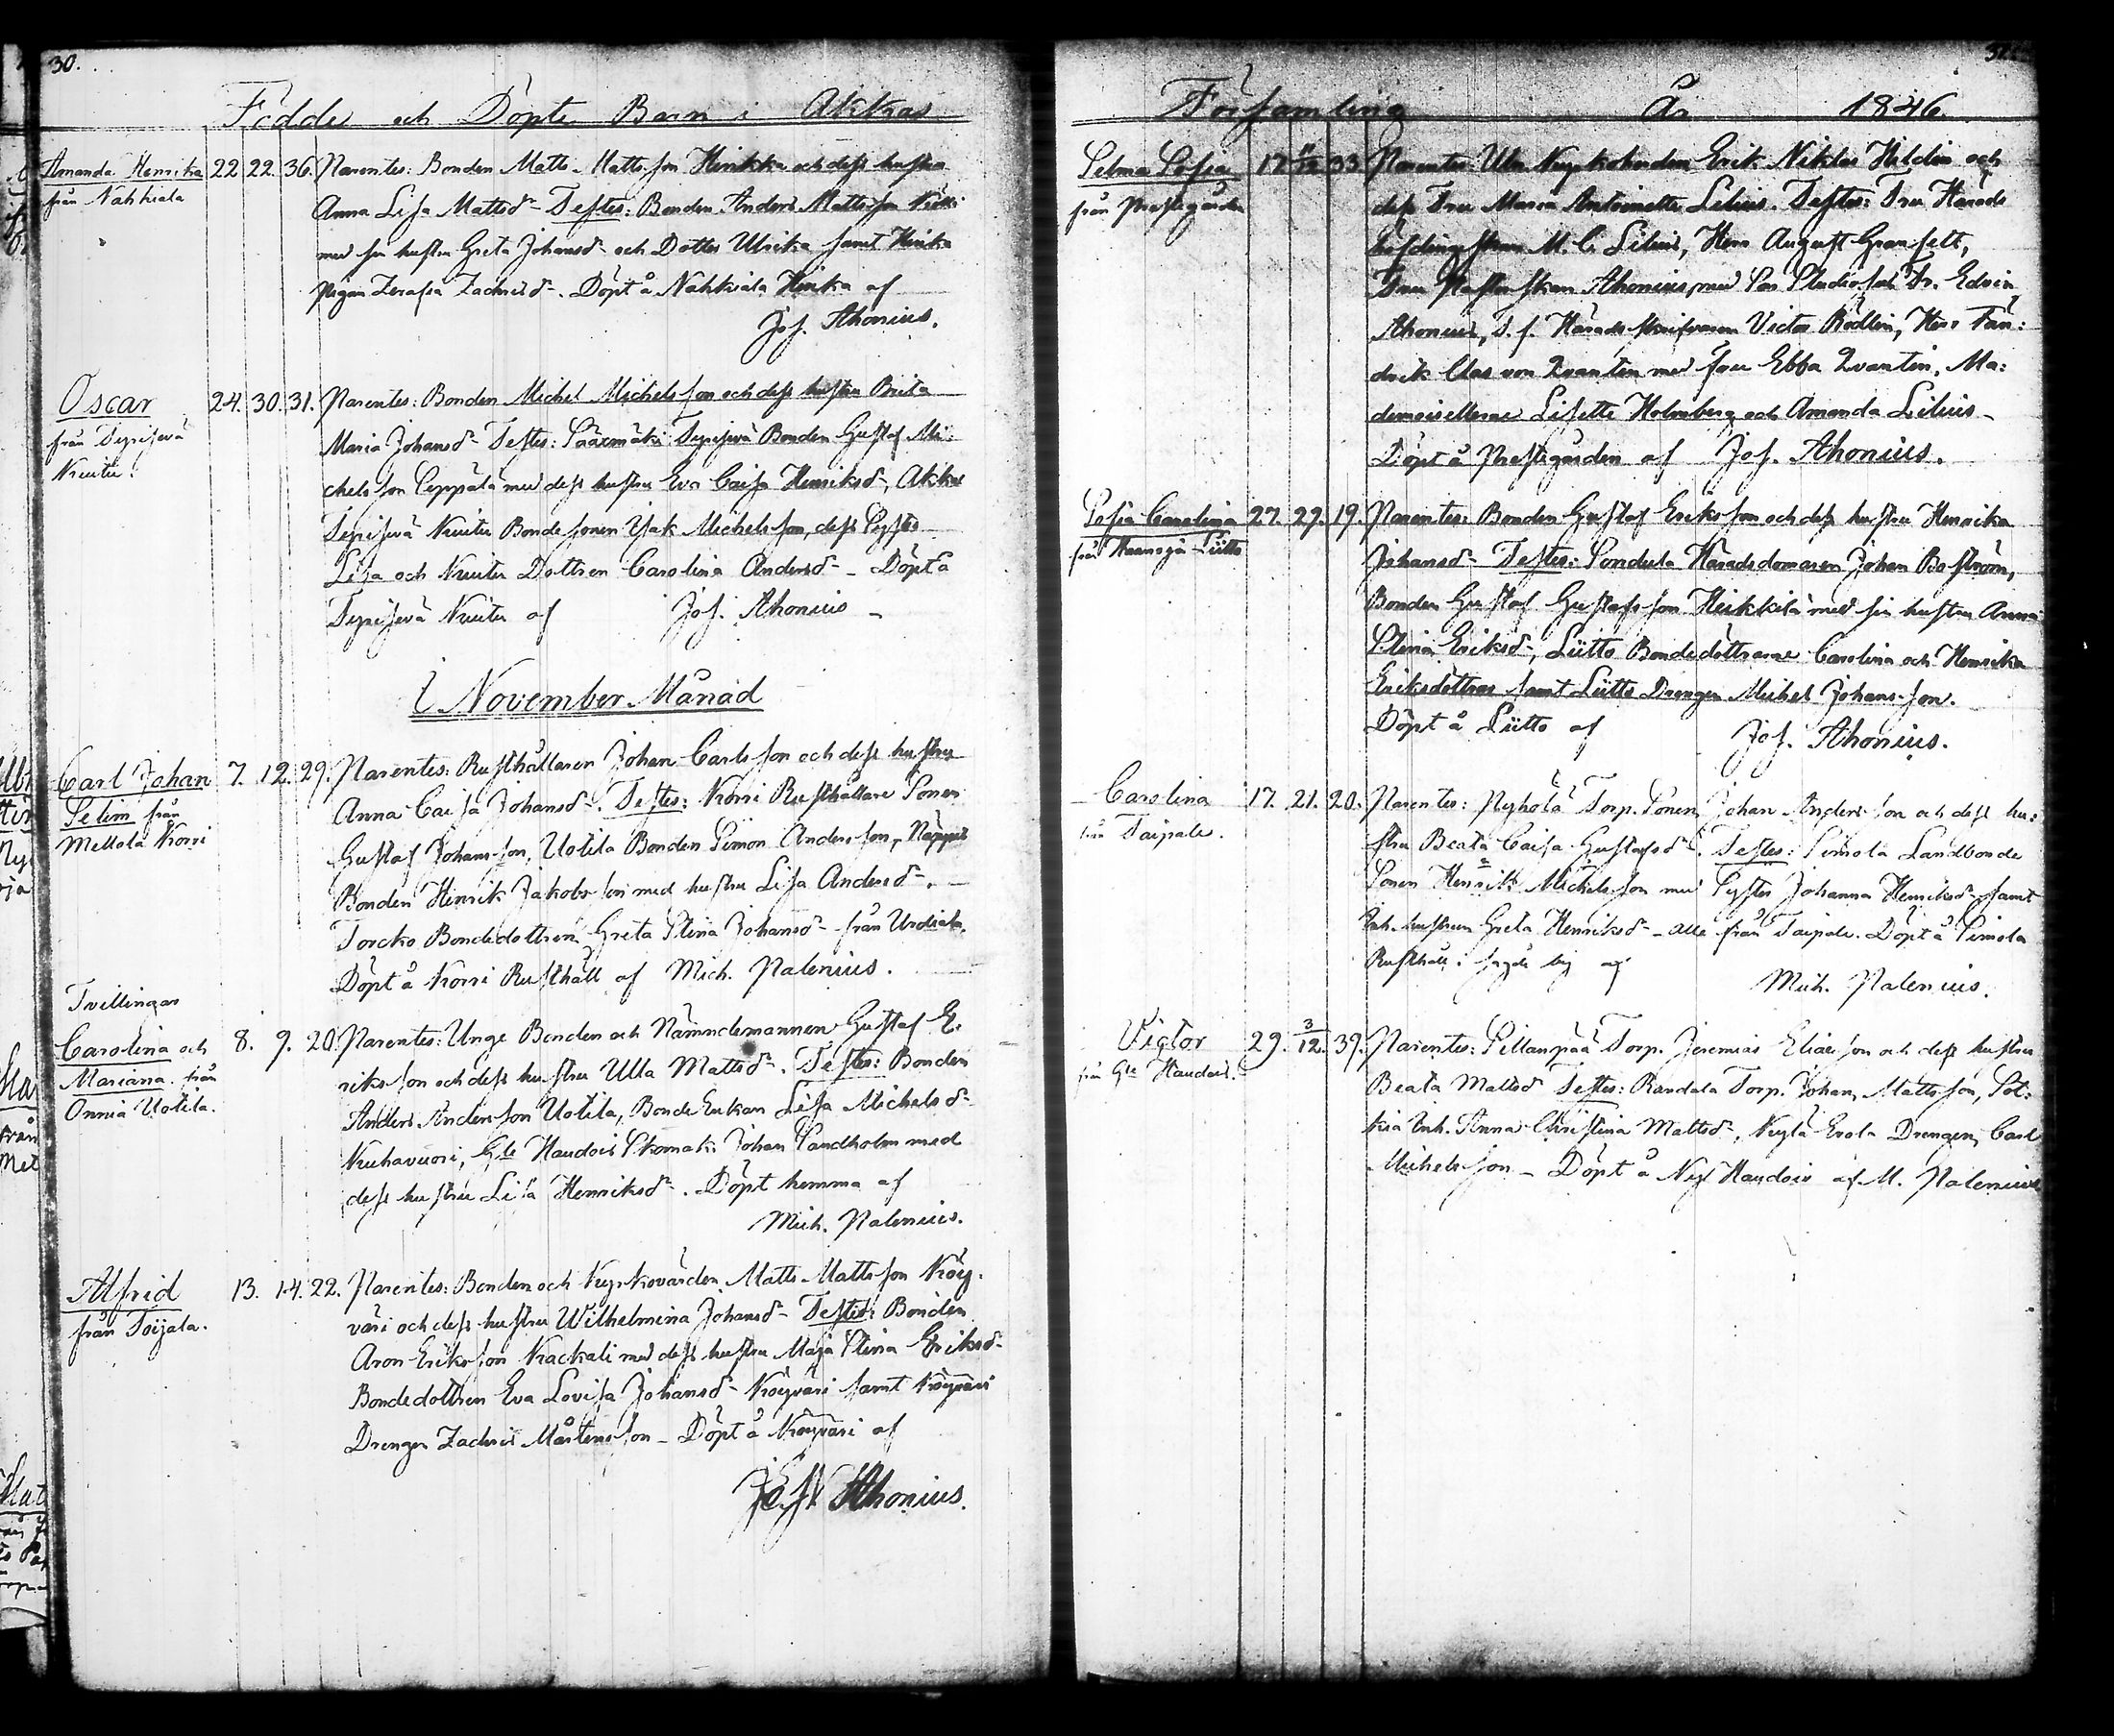 30.
Födde och Döpte Barn i Akkas
Amanda Henrika 22 22. 36. Parentes: Bonden Matts Mattsson Heikka och dess hustru
från Nahkiala
Anna Lisa Mattsdr Testes: Bonden Anders Mattsson
med sin hustru Greta Johansdr och Dotter Ulrika samt Heikka
Pigan Serafia Zachrisdr. Döpt å Nahkiala Heikka af
Jos. Ahonius.
Oscar 24. 30. 31. Parentes: Bonden Michel Michelsson och dess hustru Brita
från Terisjevä
Maria Johansdr Testes: Sääxmäki Terisjevä Bonden Gustaf Mi-
chelsson Seppälä med dess hustru Eva Caisa Henriksdr, Akkas
Terisjevä Bondesonen Isak Michelsson, dess Syster
Lisa och Dottren Carolina Andersdr - Döpt å
Terisjevä af Jos. Ahonius
I November Månad
Carl Johan 7. 12. 29. Parentes: Rusthållaren Johan Carlsson och dess hustru
Selim från
Mellola Korri
Anna Caisa Johansdr. Testes: Korri Rusthållare Sonen
Gustaf Johansson, Uotila Bonden Simon Andersson,
Bonden Henrik Jakobsson med hustru Lisa Andersdr.
Torcko Bondedottren Greta Stina Johansdr från Urdiala.
Döpt å Korri Rusthåll af Mich. Palenius.
Tvillingar
Carolina och 8. 9. 20. Parentes: Unge Bonden och Nämndemannen Gustaf E-
Mariana från
Onnia Uotila.
riksson och dess hustru Ulla Mattsdr. Testes: Bonden
Anders Andersson Uotila, Bonde Enkan Lisa Michelsdr
Kuhavuori, Gle Haudois Skomak. Johan Sandholm med
dess hustru Lisa Henriksdr. Döpt hemma af
Mich. Palenius.
Alfrid 13. 14. 22. Parentes: Bonden och Kyrkovärden Matts Mattsson Köy-
från Toijala.
väri och dess hustru Wilhelmina Johansdr Testes: Bonden
Aron Eriksson Kackali med dess hustru Maja Stina Eriksdr
Bondedottren Eva Lovisa Johansdr Köyväri samt Köyväri
Drengen Zachris Mårtensson - Döpt å Köyväri af
Jos. Ahonius.
Församling År 1846.
Selma Sofia 17 33 Parentes: Kyrkoherden Erik Niklas Hildén och
från Prestgården
dess Fru Maria Antoinette Lilius. Testes: Fru Härads
höfdingskan M. C. Lilius, Herr August Granfelt,
Fru Ahonius, med Son Edvin
Ahonius, Häradsskrifvaren Victor Rödlin, Herr Fän-
drik Clas von Qvanten med fru Ebba Qvanten, Ma-
demoisellerne Lisette Holmberg och Amanda Lilius
Döpt å Prestgården af Jos. Ahonius.
Sofia Carolina 27. 29. 19. Parentes: Bonden Gustaf Eriksson och dess hustru Henrika
från Lütto
Johansdr Testes: Sondula Häradsdomaren Johan Boström,
Bonden Gustaf Gustafsson Heikkilä med sin hustru Anna
Stina Eriksdr, Lütto Bondedöttrarne Carolina och Henrika
Eriksdöttrar samt Lütto Drengen Michel Johansson.
Döpt å Lütto af Jos. Ahonius.
Carolina 17. 21. 20. Parentes: Pyhölä Torp. Sonen Johan Andersson och dess hu-
från Taipale.
stru Beata Caisa Gustafsdr. Testes: Simola Landbonde
Sonen Henrik Michelsson med Syster Johanna Henriksdr samt
Inh. hustrun Greta Henriksdr - alle från Taipale. Döpt å Simola
Rusthåll i sagde by af Mich. Palenius.
Victor 29. 3/12. 39. Parentes: Sillanpää Torp. Jeremias Eliasson och dess hustru
från Gle Haudois.
Beata Mattsdr Testes: Randala Torp. Johan Mattsson, Sot-
kia Inh. Anna Christina Mattsdr, Erola Drengen Carl
Michelsson - Döpt å Haudois af M. Palenius